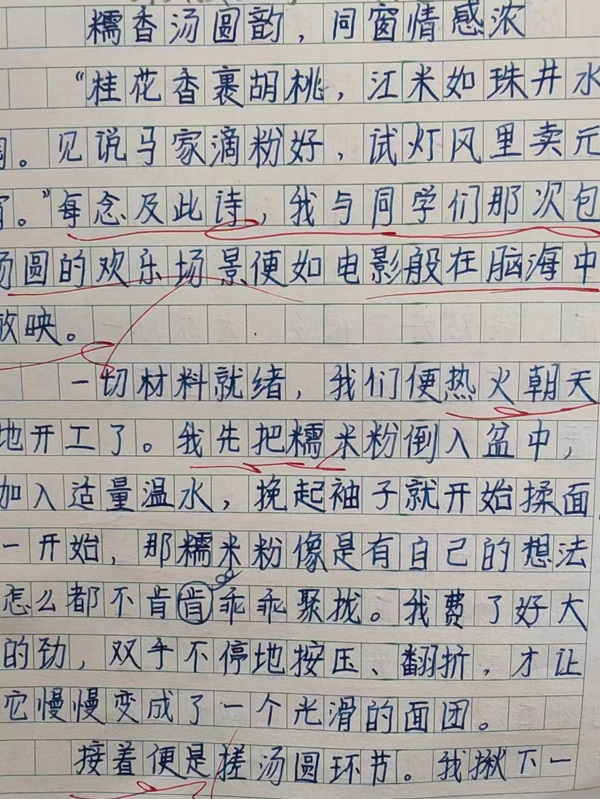 糯香汤圆韵，同窗情感浓
“桂花香裹胡桃，江米如珠井水
。见说马家滴粉好，试灯风里卖元
。”每念及此诗，我与同学们那次包
汤圆的欢乐场景便如电影般在脑海中
放映。
一切材料就绪，我们便热火朝天
地开工了。我先把糯米粉倒入盆中，
加入适量温水，挽起袖子就开始揉面
一开始，那糯米粉像是有自己的想法
怎么都不肯肯乖乖聚拢。我费了好大
的劲，双手不停地按压、翻折，才让
它慢慢变成了一个光滑的面团。
接着便是搓汤圆环节。我揪下一